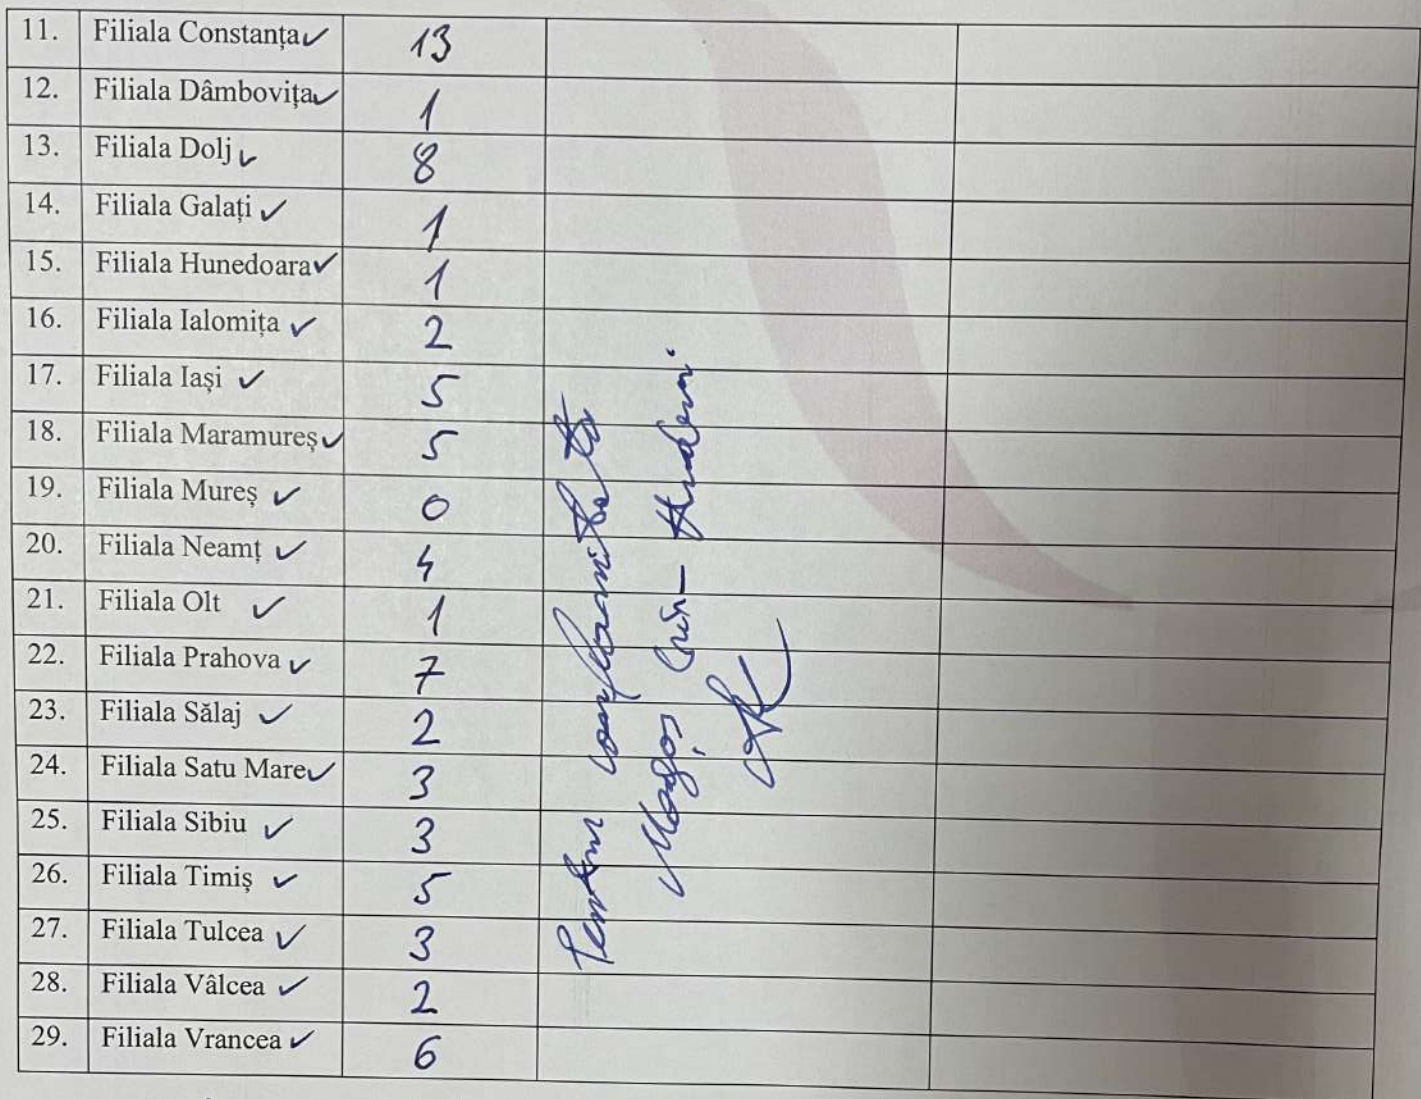 11. Filiala Constanța ✓ 13
12. Filiala Dâmbovița ✓ 1
13. Filiala Dolj ✓ 8
14. Filiala Galați ✓ 1
15. Filiala Hunedoara ✓ 1
16. Filiala Ialomița ✓ 2
17. Filiala Iași ✓ 5
18. Filiala Maramureș ✓ 5
19. Filiala Mureș ✓ 0
20. Filiala Neamț ✓ 4
21. Filiala Olt ✓ 1
22. Filiala Prahova ✓ 7
23. Filiala Sălaj ✓ 2
24. Filiala Satu Mare ✓ 3
25. Filiala Sibiu ✓ 3
26. Filiala Timiș ✓ 5
27. Filiala Tulcea ✓ 3
28. Filiala Vâlcea ✓ 2
29. Filiala Vrancea ✓ 6
Pentru conformitate